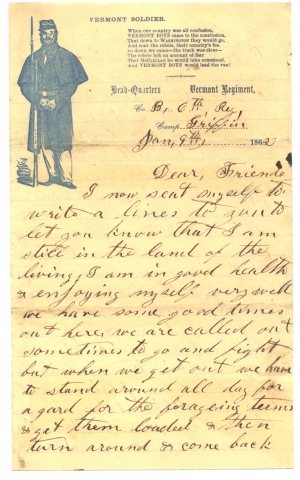 VERMONT SOLDIER.
When our country was all confusion,
VERMONT BOYS came to the conclusion,
That down to WASHINGTON they would go,
And rout the rebels, their country's foe.
So down we come—the track was clear—
The rebels left on account of fear
That McClellan he would take command,
And VERMONT BOYS would lead the van!
Head-Quarters Vermont Regiment,
Co. B, 6th Reg
Camp Griffin
Jan, 9th, 1862
Dear, Friend
I now seat myself to
write a lines to you to
let you know that I am
still in the land of the
living, I am in good health
& enjoying myself very well
we have some good times
out here, we are called out
sometimes to go and fight
but when we get out we have
to stand around all day for
a gard for the forageing teems
& get them loaded & then
turn around & come back